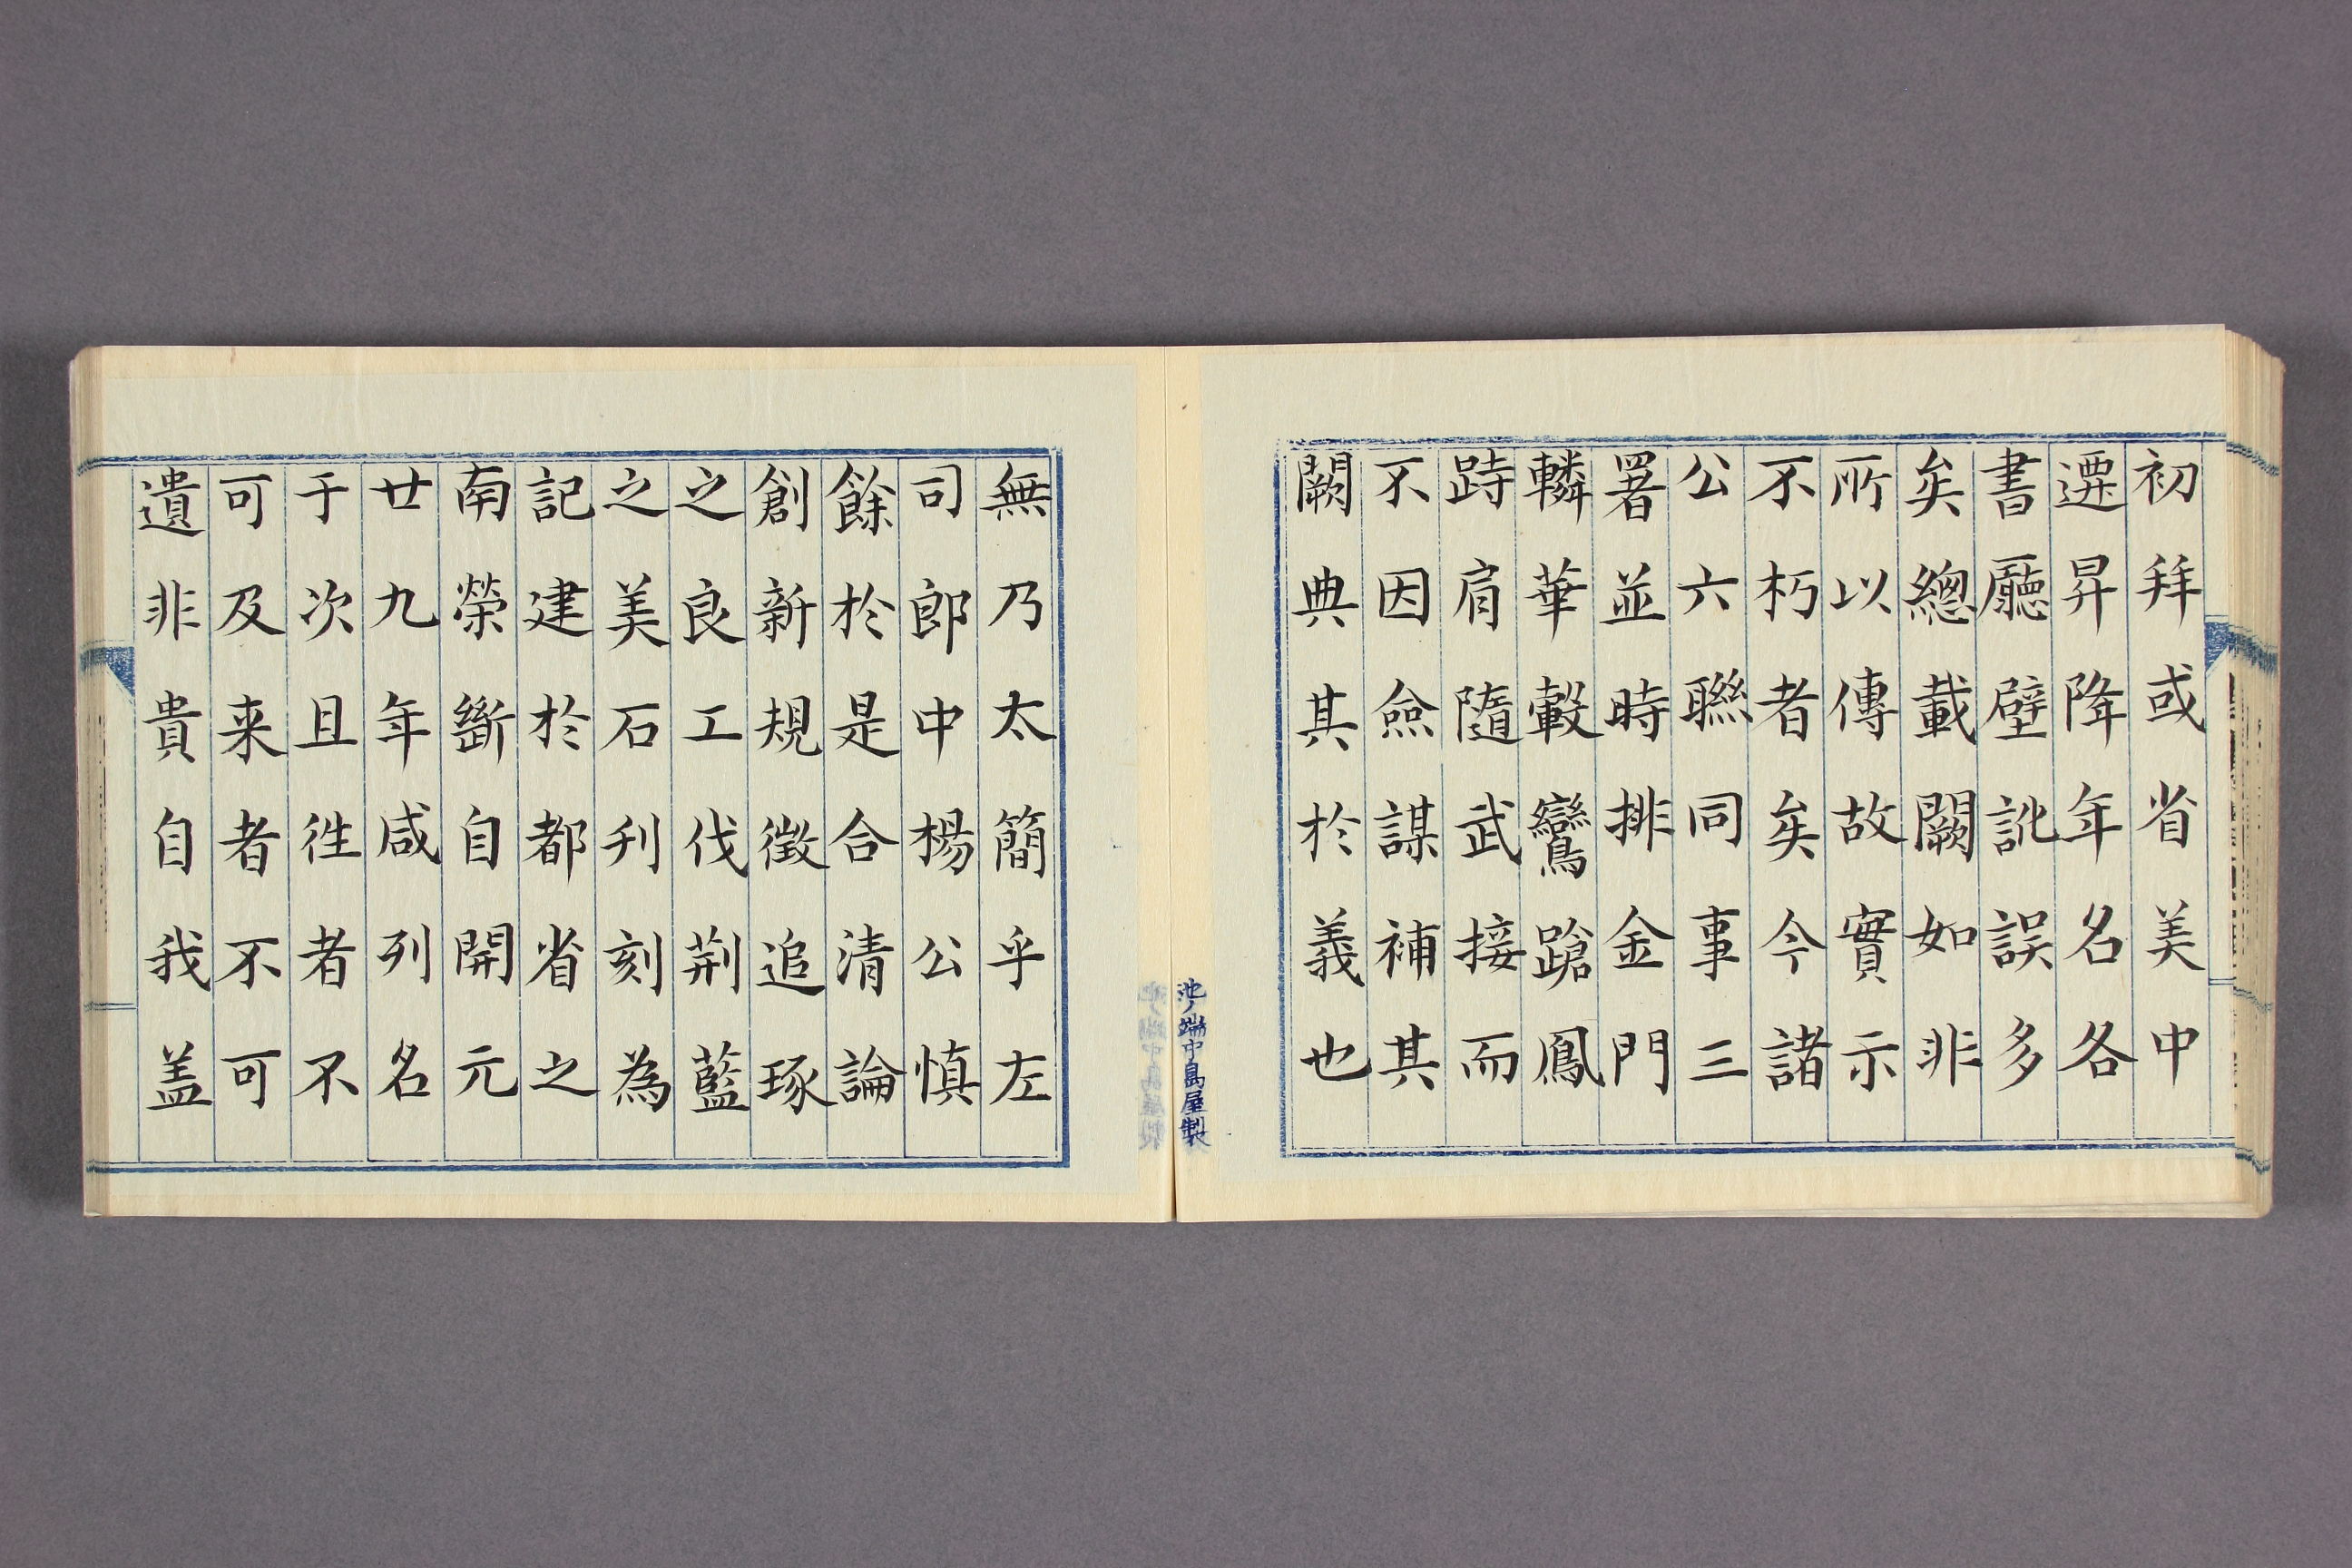 初拜或省美中
遷昇降年名各
書廳壁訛誤多
矣總載闕如非
所以傳故實示
不朽者矣今諸
公六聯同事三
署並時排金門
轔華轂鸞蹌鳳
跱肩隨武接而
不因僉謀補其
闕典其於義也
池ノ端中島屋製
無乃太簡乎左
司郎中楊公慎
餘於是合清論
創新規徵追琢
之良工伐荆藍
之美石刋刻為
記建於都省之
南榮斷自開元
廿九年咸列名
于次且徃者不
可及来者不可
遺非貴自我盖